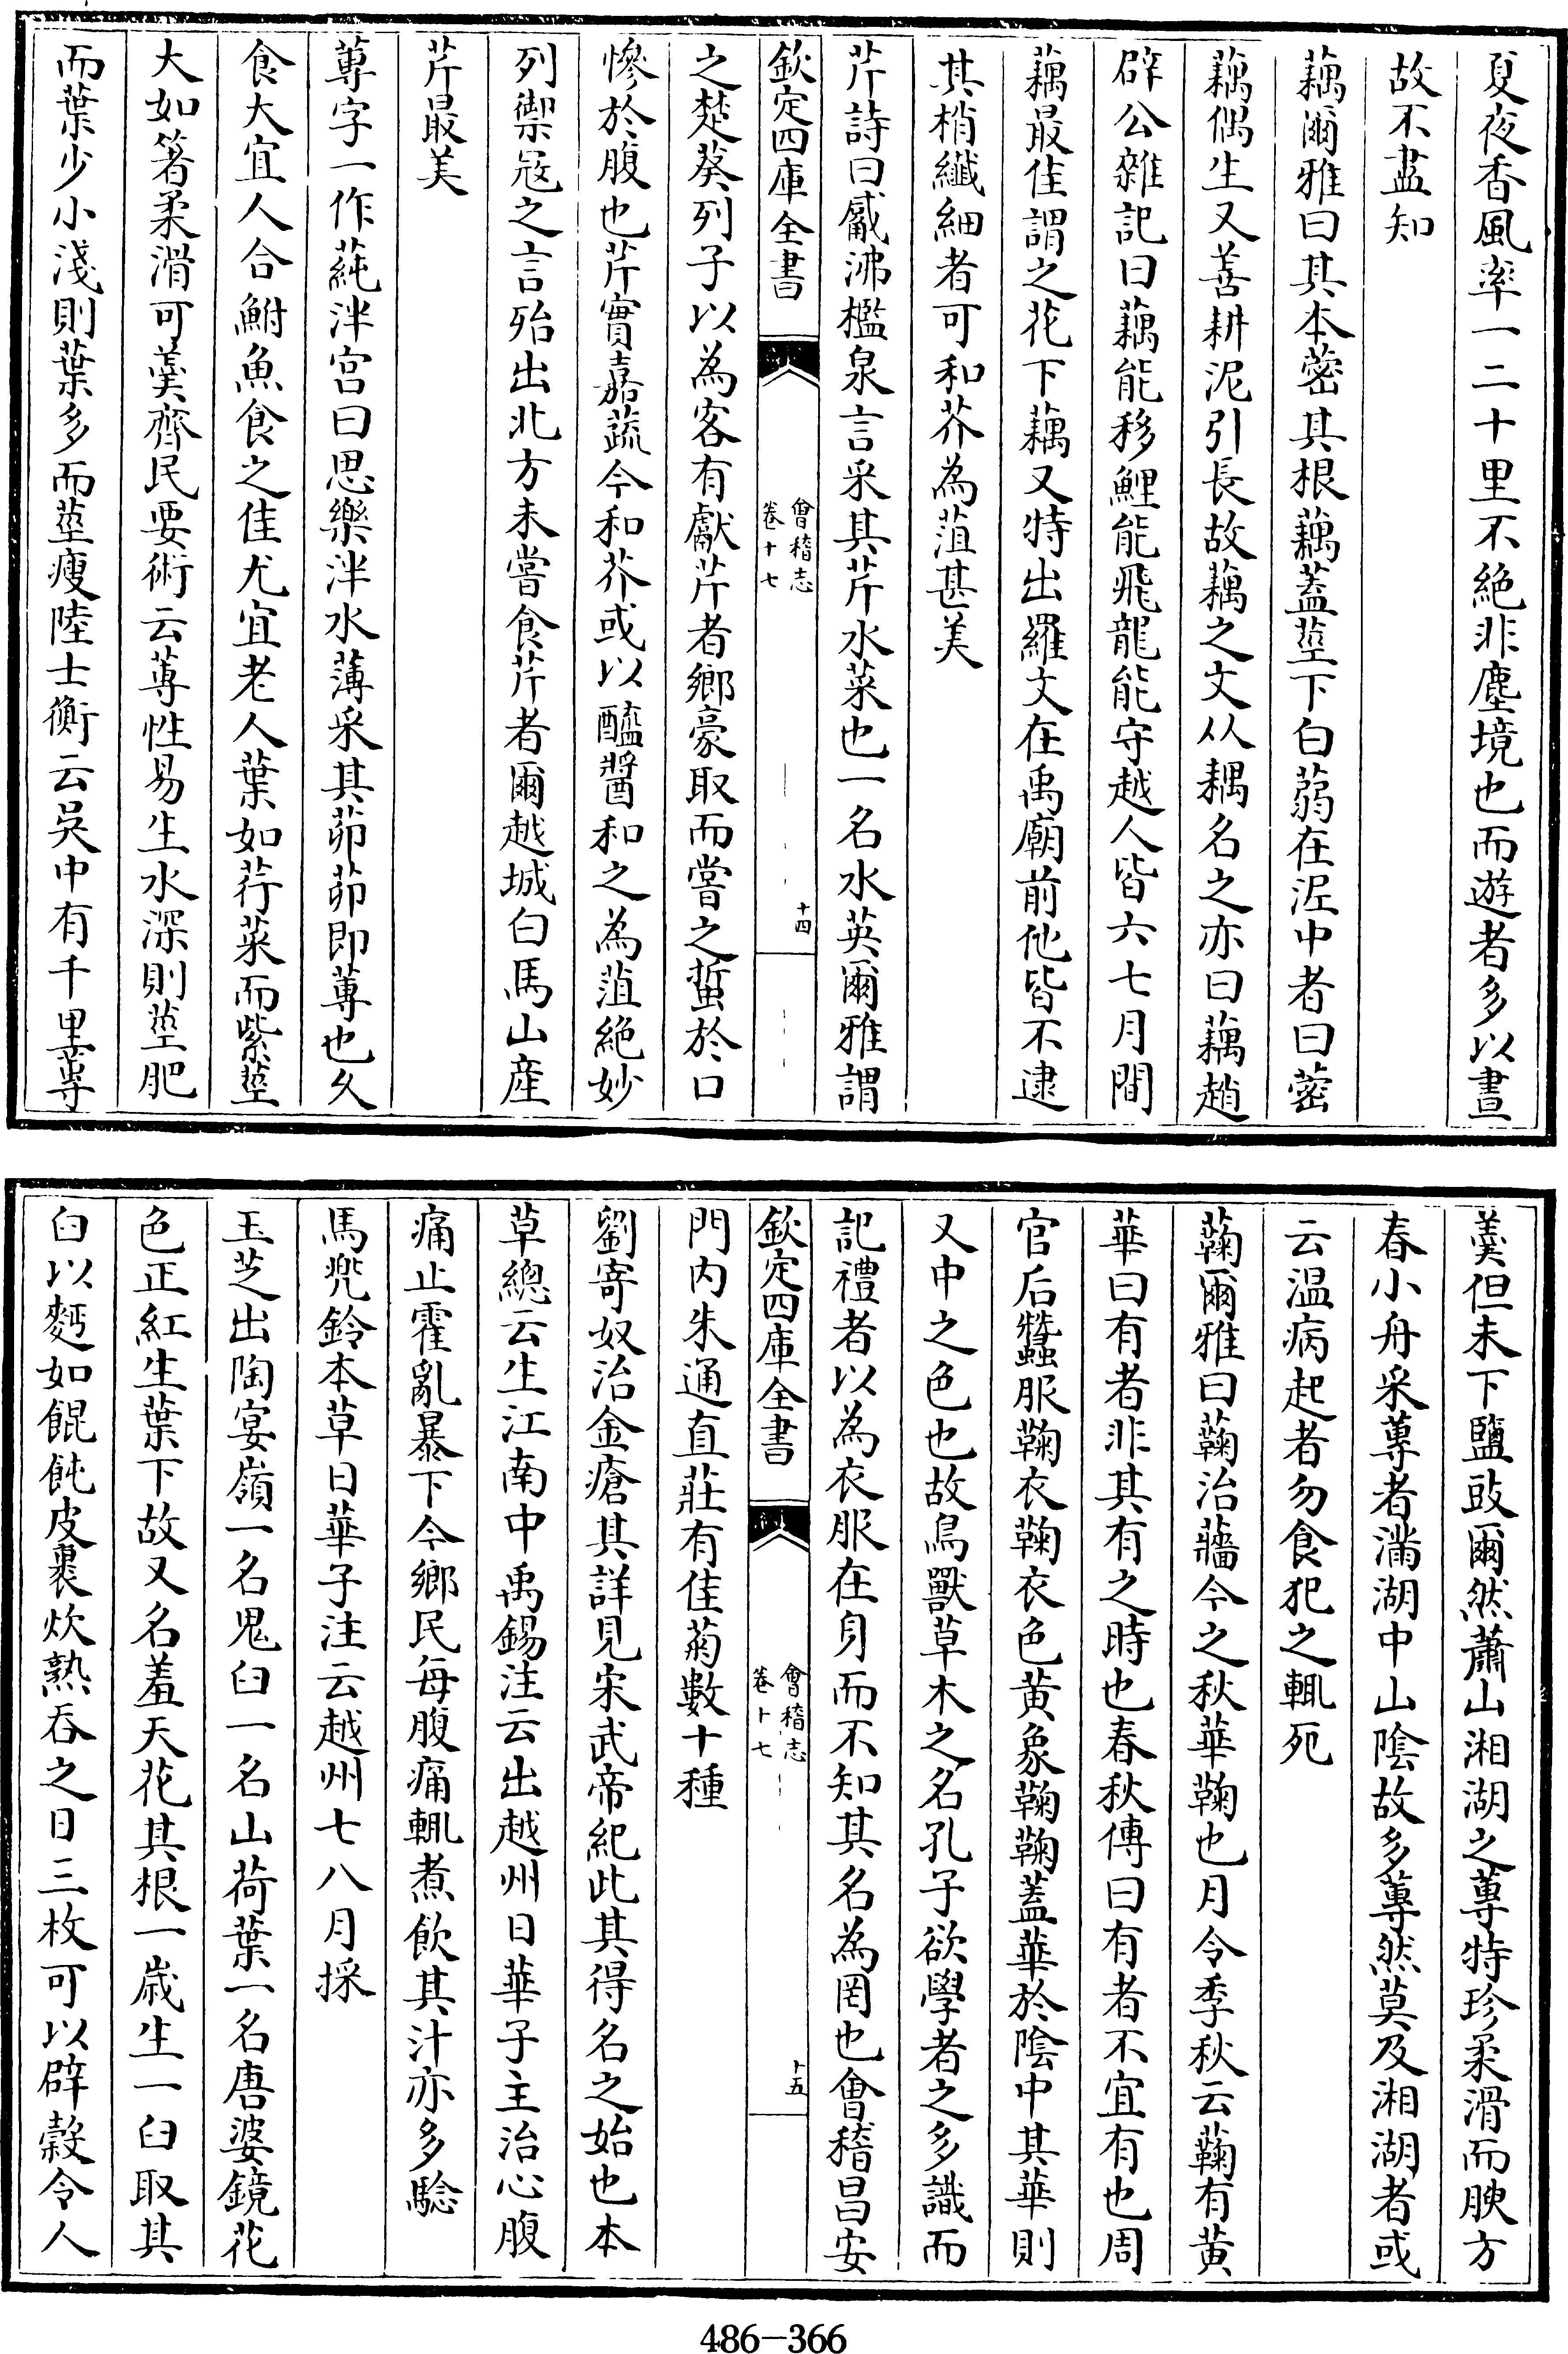 夏夜香風率一二十里不絶非塵境也而遊者多以晝
故不盡知
藕爾雅曰其本蔤其根藕蓋莖下白蒻在泥中者曰蔤
藕偶生又善耕泥引長故藕之文从耦名之亦曰藕趙
辟公雜記曰藕能移鯉能飛龍能守越人皆六七月間
藕最佳謂之花下藕又特出羅文在禹廟前他皆不逮
其梢纖細者可和芥為菹甚美
芹詩曰觱沸檻泉言采其芹水菜也一名水英爾雅謂
欽定四庫全書
會稽志
卷十七
十四
之楚葵列子以為客有獻芹者鄉豪取而嘗之蜇於口
慘於腹也芹實嘉蔬今和芥或以醯醬和之為菹絶妙
列禦寇之言殆出北方未嘗食芹者爾越城白馬山産
芹最美
蓴字一作蒓泮宫曰思樂泮水薄采其茆茆即蓴也久
食大宜人合鮒魚食之佳尤宜老人葉如荇菜而紫莖
大如箸柔滑可羹齊民要術云蓴性易生水深則莖肥
而葉少小淺則葉多而莖瘦陸士衡云吳中有千里蓴
羹但未下鹽豉爾然蕭山湘湖之蓴特珍柔滑而腴方
春小舟采蓴者滿湖中山陰故多蓴然莫及湘湖者或
云温病起者勿食犯之輒死
蘜爾雅曰蘜治蘠今之秋華蘜也月令季秋云蘜有黄
華曰有者非其有之時也春秋傳曰有者不宜有也周
官后蠶服鞠衣鞠衣色黄象蘜蘜蓋華於陰中其華則
又中之色也故鳥獸草木之名孔子欲學者之多識而
記禮者以為衣服在身而不知其名為罔也會稽昌安
欽定四庫全書
會稽志
卷十七
十五
門内朱通直莊有佳菊數十種
劉寄奴治金瘡其詳見宋武帝紀此其得名之始也本
草總云生江南中禹錫注云出越州日華子主治心腹
痛止霍亂暴下今鄉民每腹痛輒煮飲其汁亦多騐
馬兜鈴本草日華子注云越州七八月採
玉芝出陶宴嶺一名鬼臼一名山荷葉一名唐婆鏡花
色正紅生葉下故又名羞天花其根一歳生一臼取其
臼以麪如餛飩皮裹炊熟吞之日三枚可以辟穀令人
486-366